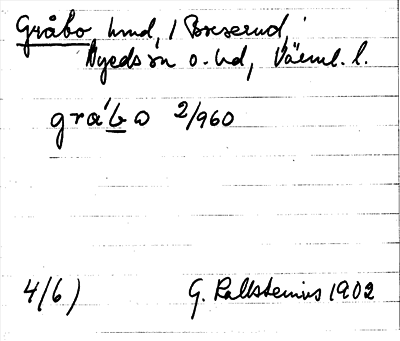 Gråbo hmd, 1 Boserud,
Nyeds sn o. hd, Värml. l.
grá b o 2/960
4/6) G. Kallstenius 1902